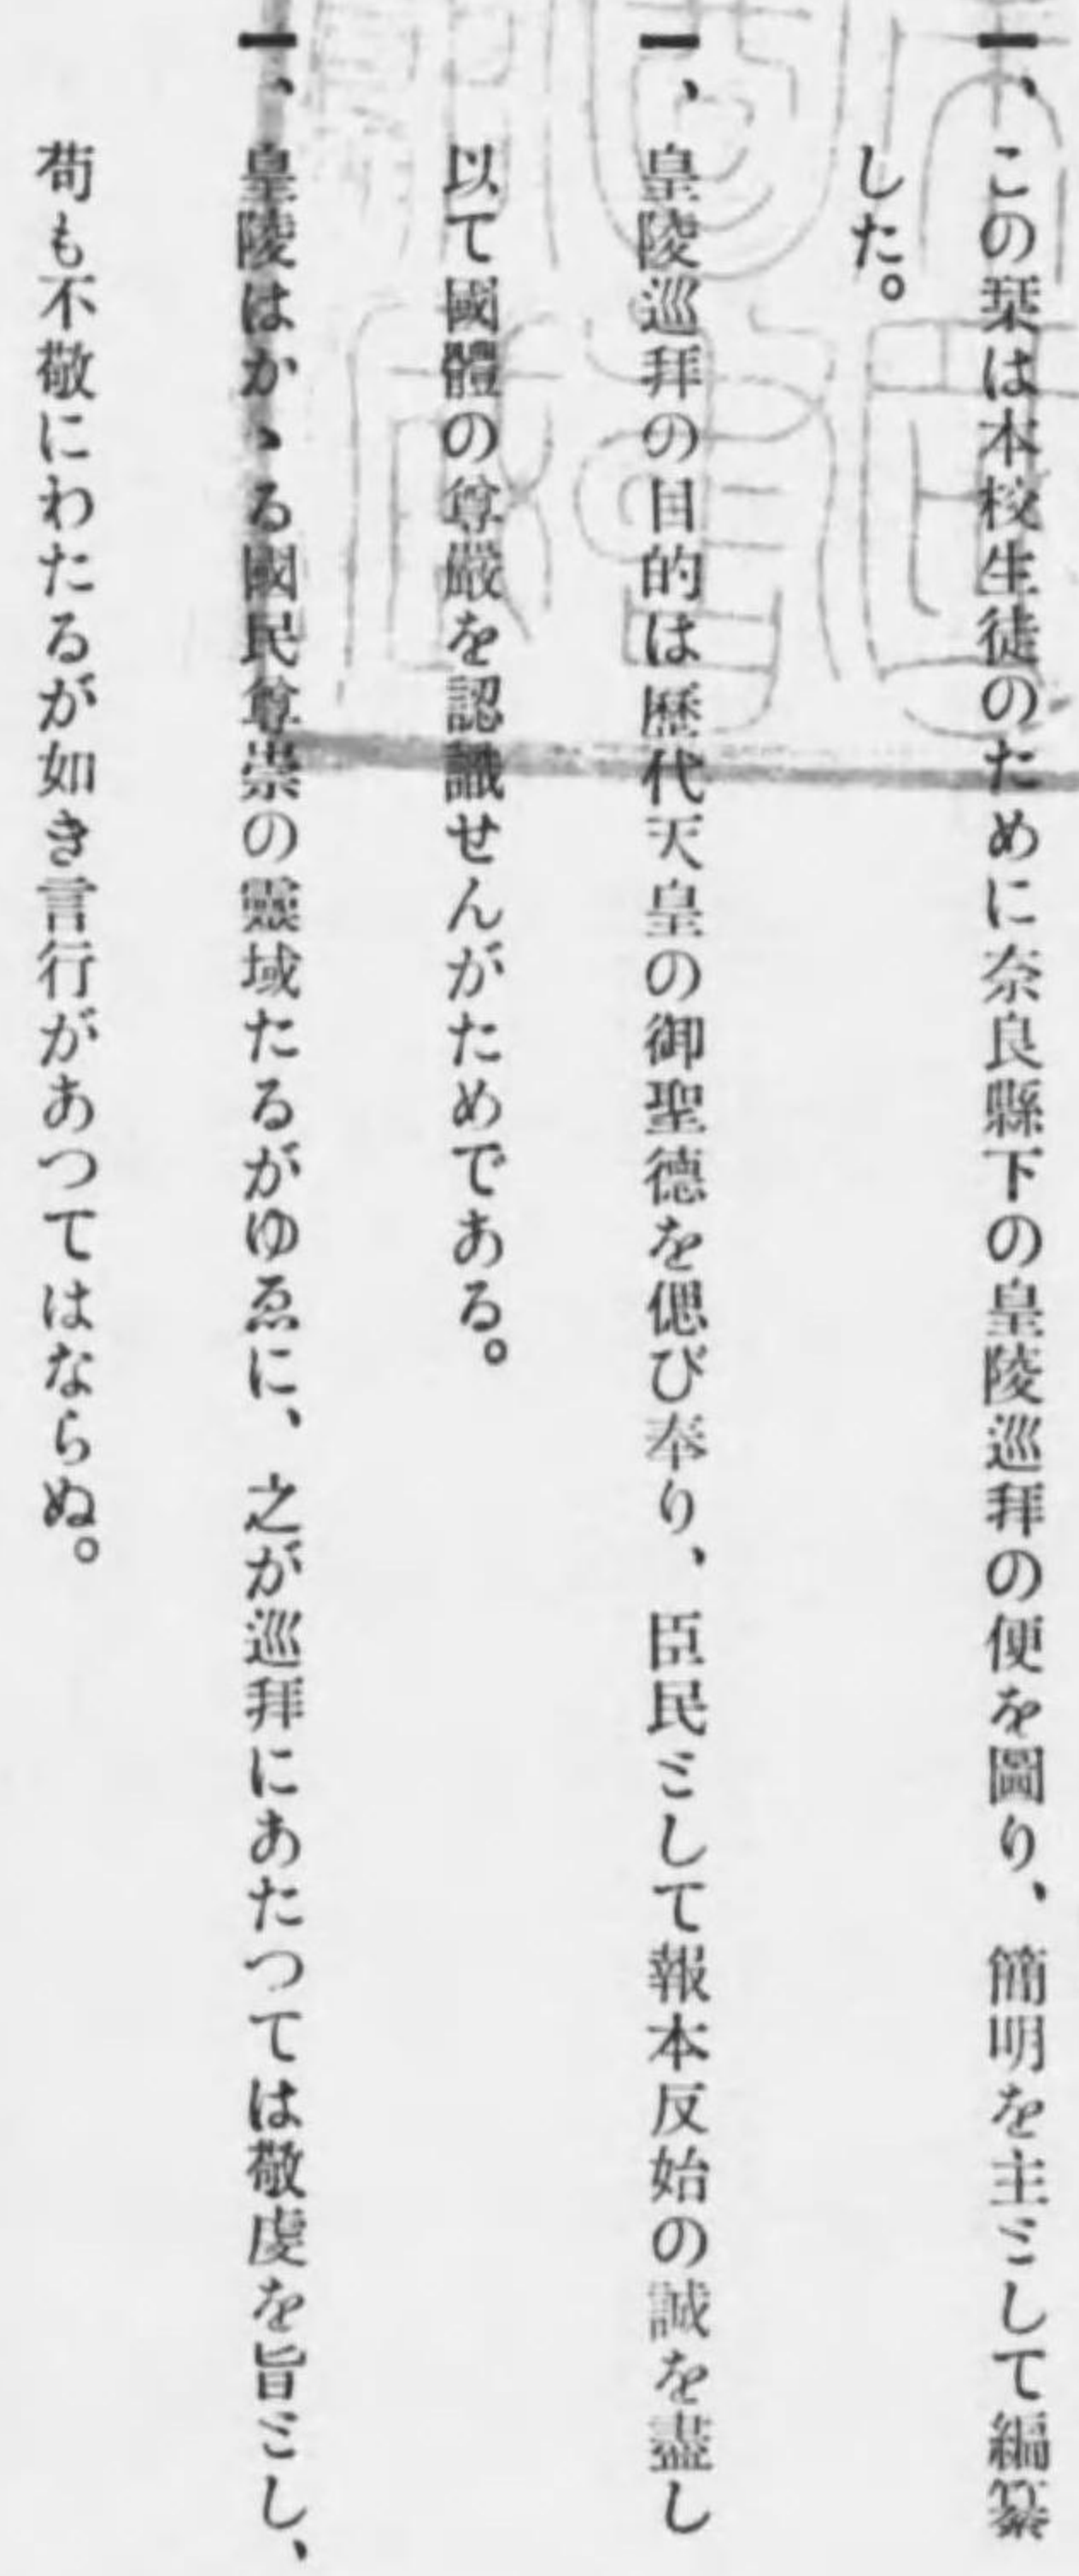 一、この栞は本校生徒のために奈良縣下の皇陵巡拜の便を圖り、簡明を主として編纂
した。
一、皇陵巡拜の目的は歷代天皇の御聖德を偲び奉り、臣民として報本反始の誠を盡し
以て國體の尊嚴を認識せんがためである。
一、皇陵はかゝる國民尊崇の靈域たるがゆゑに、之が巡拜にあたつては敬虔を旨とし、
苟も不敬にわたるが如き言行があつてはならぬ。